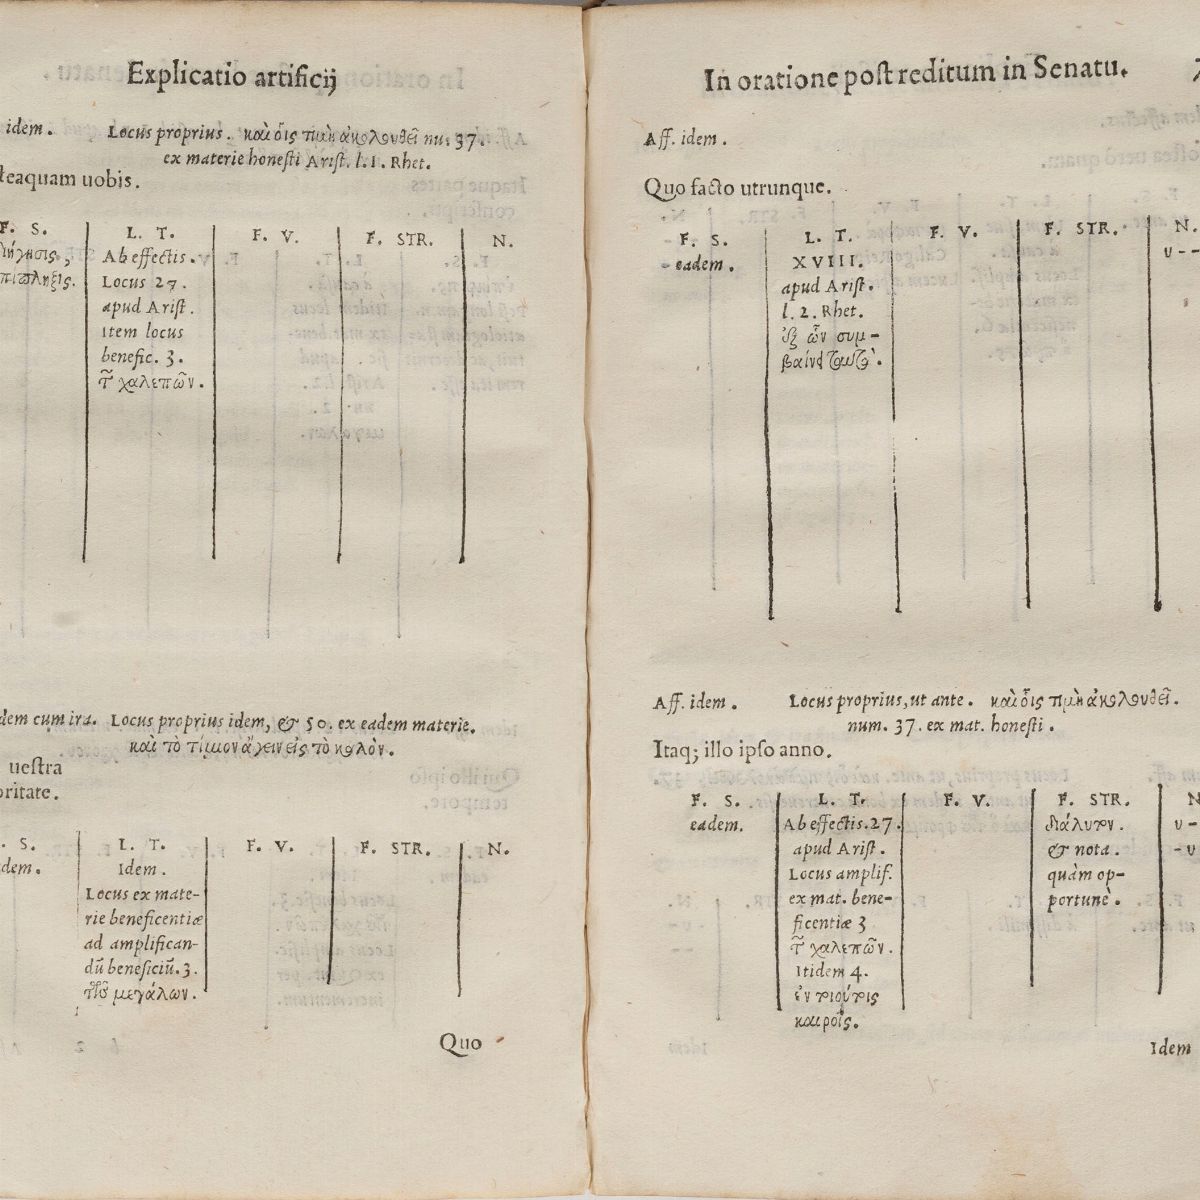 Explicatio artificij
idem. Locus proprius. καὶ οἷς τιμὴ ἀκολουθεῖ nu. 37.
ex materie honesti Arist. l. 1. Rhet.
teaquam uobis.
F. S. L. T. F. V. F. STR. N.
Ab effectis.
Locus 27.
apud Arist.
item locus
benefic. 3.
τῶν χαλεπῶν.
dem cum ira. Locus proprius idem, & 50. ex eadem materie.
καὶ τὸ τίμιον ἄγειν εἰς τὸ καλὸν.
uestra
oritate.
. S. L. T. F. V. F. STR. N.
dem. Idem.
Locus ex mate-
rie beneficentiæ
ad amplifican-
dũ beneficiũ. 3.
τῶν μεγάλων.
Quo
In oratione post reditum in Senatu. 7
Aff. idem.
Quo facto utrunque.
F. S. L. T. F. V. F. STR. N.
eadem. XVIII. υ--
apud Arist.
l. 2. Rhet.
ἐξ ὧν συμ-
Aff. idem. Locus proprius, ut ante. καὶ οἷς τιμὴ ἀκολουθεῖ.
num. 37. ex mat. honesti.
Itaq; illo ipso anno.
F. S. L. T. F. V. F. STR. N
eadem. Ab effectis. 27. διάλυτον. υ--
apud Arist. & nota. -υ
Locus amplif. quàm op-
ex mat. bene- portunè.
ficentiæ 3
τῶν χαλεπῶν.
Itidem 4.
ἐν τοιούτοις
καιροῖς.
Idem